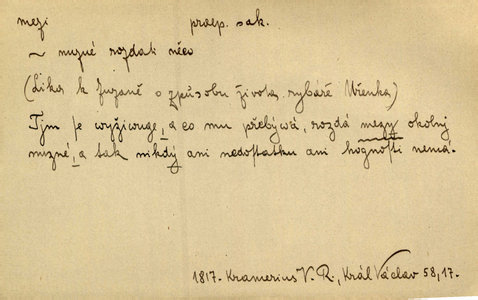 mezi praep. sak.
~ nuzné rozdati něco
(Lika k Zuzaně o způsobu života rybáře Uřenka)
Tjm se wyžiwuge, a co mu přebýwá, rozdá mezy okolnj
nuzné, a tak nikdý ani nedostatku ani hognosti nemá.
1817. Kramerius V. R., Král Václav 58, 17.